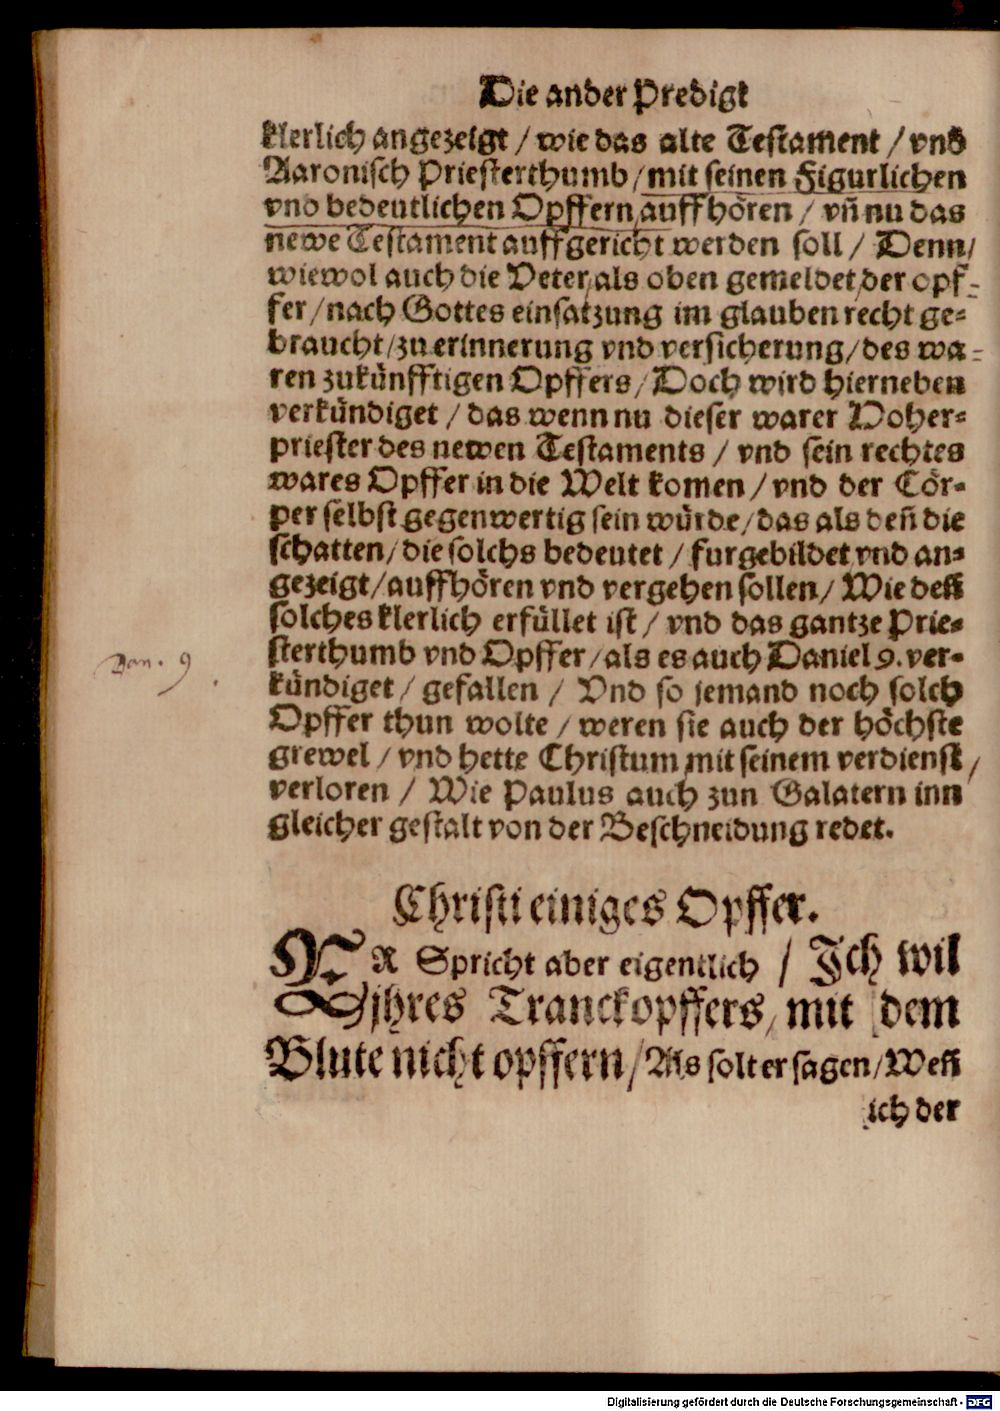 Die ander Predigt
klerlich angezeigt / wie das alte Testament / vnd
Aaronisch Priesterthumb / mit seinen Figurlichen
vnd bedeutlichen Opffern auffhören / vñ nu das
newe Testament auffgericht werden soll / Denn /
wiewol auch die Veter / als oben gemeldet / der opf-
fer / nach Gottes einsatzung im glauben recht ge-
braucht / zu erinnerung vnd versicherung / des wa-
ren zukünfftigen Opffers / Doch wird hierneben
verkündiget / das wenn nu dieser warer Hoher-
priester des newen Testaments / vnd sein rechtes
wares Opffer in die Welt komen / vnd der Cör-
per selbst gegenwertig sein würde / das als deñ die
schatten / die solchs bedeutet / furgebildet vnd an-
gezeigt / auffhören vnd vergehen sollen / Wie deñ
solches klerlich erfüllet ist / vnd das gantze Prie-
sterthumb vnd Opffer / als es auch Daniel 9. ver-
Dan. 9
kündiget / gefallen / Vnd so jemand noch solch
Opffer thun wolte / weren sie auch der höchste
grewel / vnd hette Christum mit seinem verdienst /
verloren / Wie Paulus auch zun Galatern inn
gleicher gestalt von der Beschneidung redet.
Christi einiges Opffer.
ER Spricht aber eigentlich / Ich wil
jhres Tranckopffers / mit dem
Blute nicht opffern / Als solt er sagen / Weñ
ich der
Digitalisierung gefördert durch die Deutsche Forschungsgemeinschaft - DFG